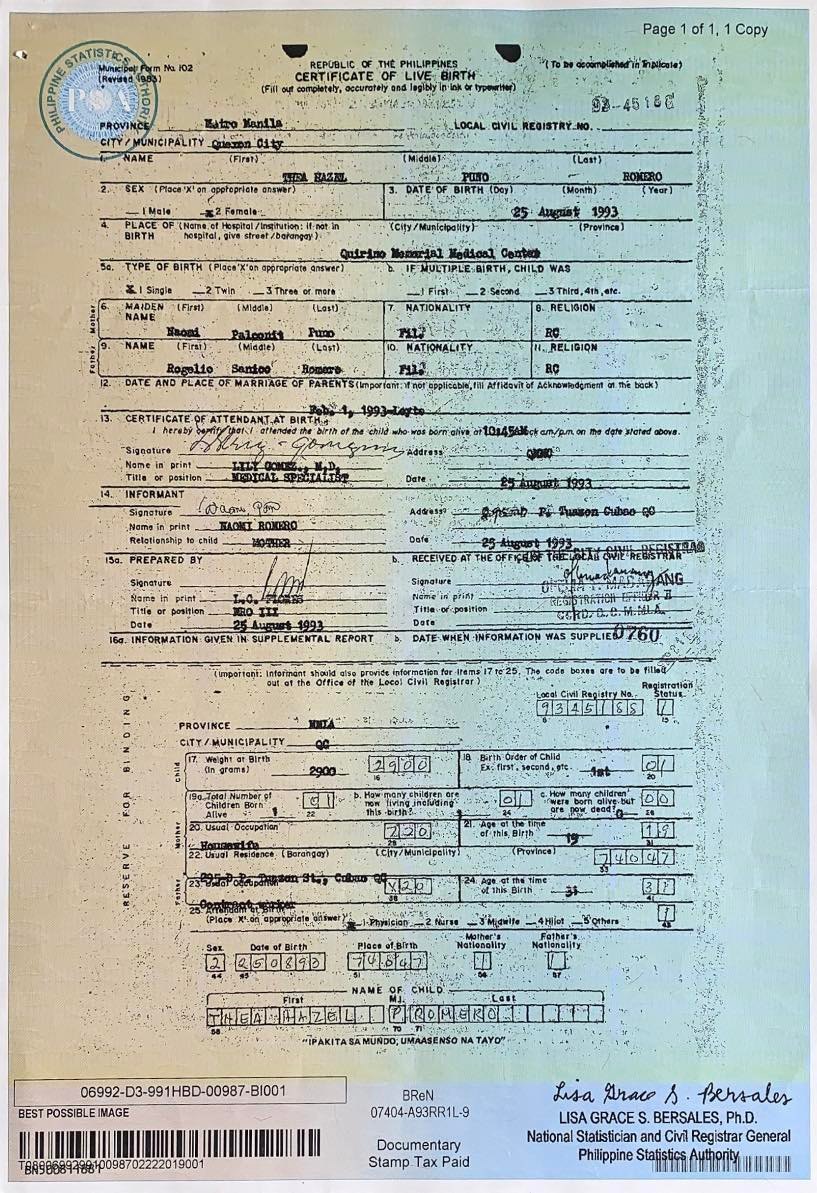 Page 1 of 1, 1 Copy
PHILIPPINE STATISTICS AUTHORITY
PSA
Municipal Form No. 102
(Revised 1983)
REPUBLIC OF THE PHILIPPINES
CERTIFICATE OF LIVE BIRTH
(Fill out completely, accurately and legibly in ink or typewriter)
(To be accomplished in triplicate)
PROVINCE Metro Manila
LOCAL CIVIL REGISTRY NO.
CITY/MUNICIPALITY Quezon City
1. NAME (First) (Middle) (Last)
THEA HAZEL PUNO ROMERO
2. SEX (Place 'X' on appropriate answer) 3. DATE OF BIRTH (Day) (Month) (Year)
1 Male X 2 Female 25 August 1993
4. PLACE OF BIRTH (Name of Hospital/Institution; if not in hospital, give street/barangay) (City/Municipality) (Province)
Quirino Memorial Medical Center
5a. TYPE OF BIRTH (Place 'X' on appropriate answer) b. IF MULTIPLE BIRTH, CHILD WAS
X 1 Single 2 Twin 3 Three or more 1 First 2 Second 3 Third, 4th, etc.
Mother
6. MAIDEN NAME (First) (Middle) (Last) 7. NATIONALITY 8. RELIGION
Naomi Palconit Puno Fil. RC
Father
9. NAME (First) (Middle) (Last) 10. NATIONALITY 11. RELIGION
Rogelio Sanico Romero Fil. RC
12. DATE AND PLACE OF MARRIAGE OF PARENTS (Important: if not applicable, fill Affidavit of Acknowledgment at the back)
Feb. 1, 1993-Leyte
13. CERTIFICATE OF ATTENDANT AT BIRTH
I hereby certify that I attended the birth of the child who was born alive at 10:45AM o'clock am/p.m. on the date stated above.
Signature Address QMMC
Name in print LILY GOMEZ, M.D.
Title or position MEDICAL SPECIALIST Date 25 August 1993
14. INFORMANT
Signature Address P. Tuazon Cubao QC
Name in print NAOMI ROMERO
Relationship to child MOTHER Date 25 August 1993
15a. PREPARED BY b. RECEIVED AT THE OFFICE OF THE LOCAL CIVIL REGISTRAR
CIVIL REGISTRAR
Signature Signature
Name in print L.C. FLORES Name in print
Title or position NRO III Title or position
REGISTRATION OFFICER II
Date 25 August 1993 Date
16a. INFORMATION GIVEN IN SUPPLEMENTAL REPORT b. DATE WHEN INFORMATION WAS SUPPLIED 0760
(Important: Informant should also provide information for items 17 to 25. The code boxes are to be filled
out at the Office of the Local Civil Registrar)
Local Civil Registry No. Registration Status
1
RESERVE FOR BINDING
PROVINCE MNLA
CITY/MUNICIPALITY QC
Child
17. Weight at Birth (in grams) 2900 2900 18. Birth Order of Child Ex: first, second, etc. 1st 01
16 20
19a. Total Number of Children Born Alive 01 b. How many children are now living including this birth? 01 c. How many children were born alive but are now dead? 0 00
22
Mother
20. Usual Occupation Housewife 220 21. Age at the time of this Birth 19 19
22. Usual Residence (Barangay) (City/Municipality) (Province) 74047
295-D P. Tuazon St., Cubao QC
Father
23. Usual Occupation X20 24. Age at the time of this Birth 31 31
Contract worker
25. Attendant at Birth (Place 'X' on appropriate answer) X 1 Physician 2 Nurse 3 Midwife 4 Hilot 5 Others 1
Sex Date of Birth Place of Birth Mother's Nationality Father's Nationality
2 250893 74047 1 1
NAME OF CHILD
First M.I. Last
THEA HAZEL P ROMERO
70 71
"IPAKITA SA MUNDO, UMAASENSO NA TAYO"
06992-D3-991HBD-00987-BI001
BEST POSSIBLE IMAGE
BReN
07404-A93RR1L-9
Documentary
Stamp Tax Paid
Lisa Grace S. Bersales
LISA GRACE S. BERSALES, Ph.D.
National Statistician and Civil Registrar General
Philippine Statistics Authority